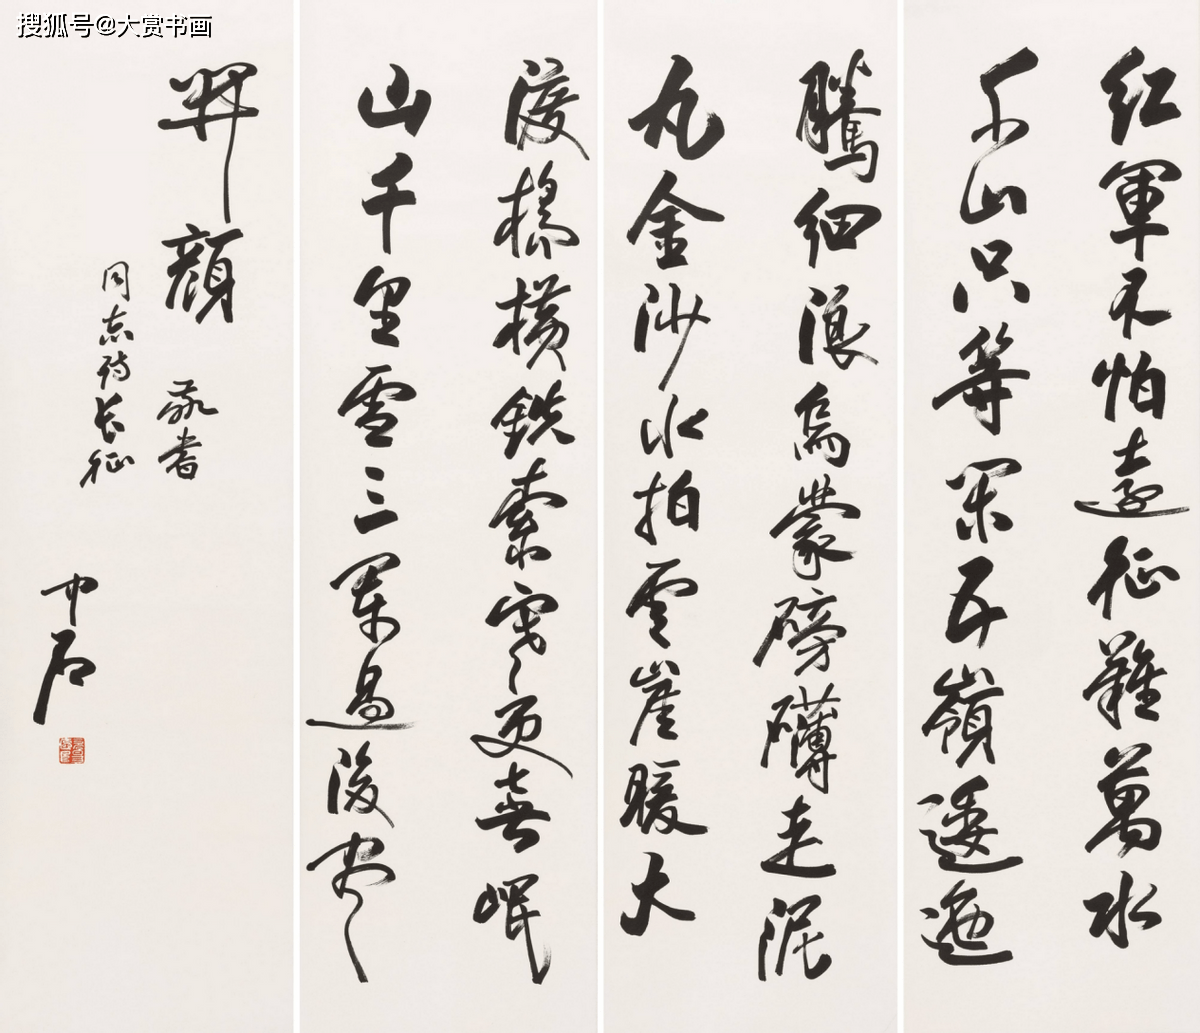 搜狐号@大赏书画
红軍不怕遠征難萬水
千山只等闲五嶺逶迤
騰细浪烏蒙磅礴走泥
丸金沙水拍雲崖暖大
渡橋横鉄索寒更喜岷
山千里雪三軍過後尽
開顔 敬書
同志詩長征
中石